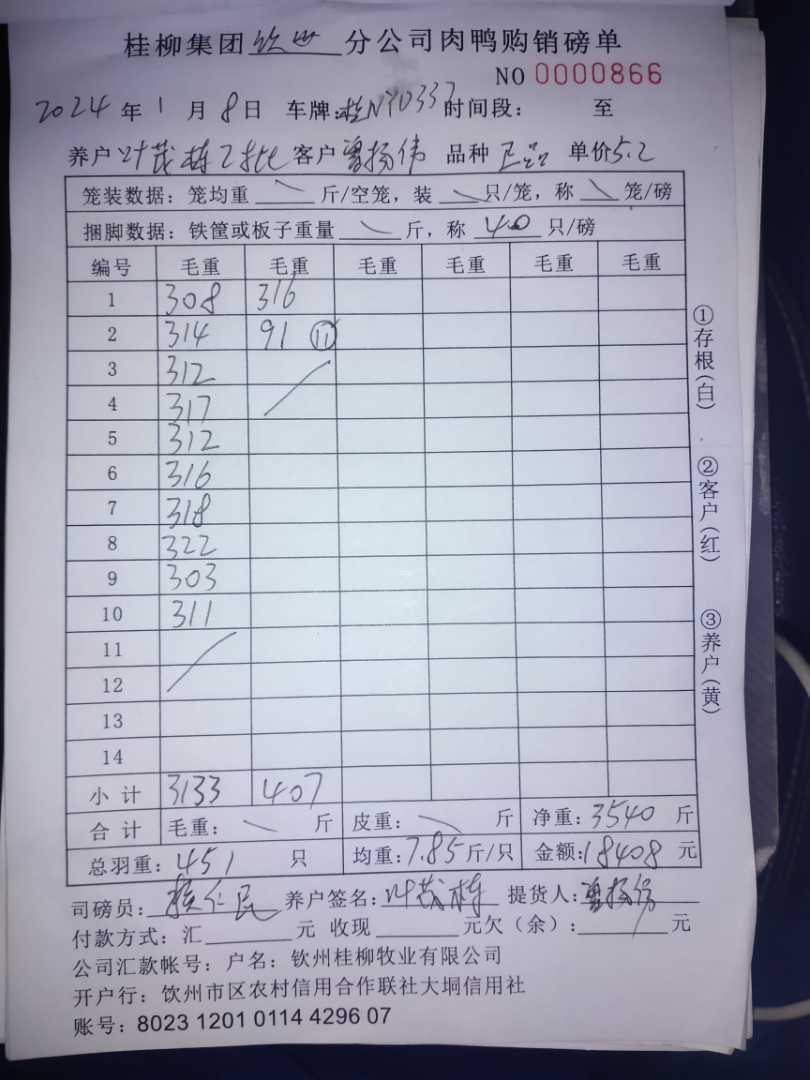 桂柳集团钦州分公司肉鸭购销磅单
NO 0000866
2024年1月8日 车牌:桂NYD337时间段： 至
养户叶茂栋乙批客户曾扬伟 品种 正品 单价5.2
笼装数据：笼均重 ＼ 斤/空笼，装 ＼ 只/笼，称 ＼ 笼/磅
捆脚数据：铁筐或板子重量 ＼ 斤，称 40 只/磅
编号 毛重 毛重 毛重 毛重 毛重 毛重
1 308 316
2 314 91 ⑪
3 312
4 317
5 312
6 316
7 318
8 322
9 303
10 311
11
12
13
14
小计 3133 407
合计 毛重：＼ 斤 皮重：＼ 斤 净重：3540 斤
总羽重：451 只 均重：7.85斤/只 金额：18408 元
司磅员： 仁民 养户签名：叶茂栋 提货人：曾扬伟
付款方式：汇 元 收现 元欠（余）： 元
公司汇款帐号：户名：钦州桂柳牧业有限公司
开户行：饮州市区农村信用合作联社大垌信用社
账号：8023 1201 0114 4296 07
①存根(白)
②客户(红)
③养户(黄)